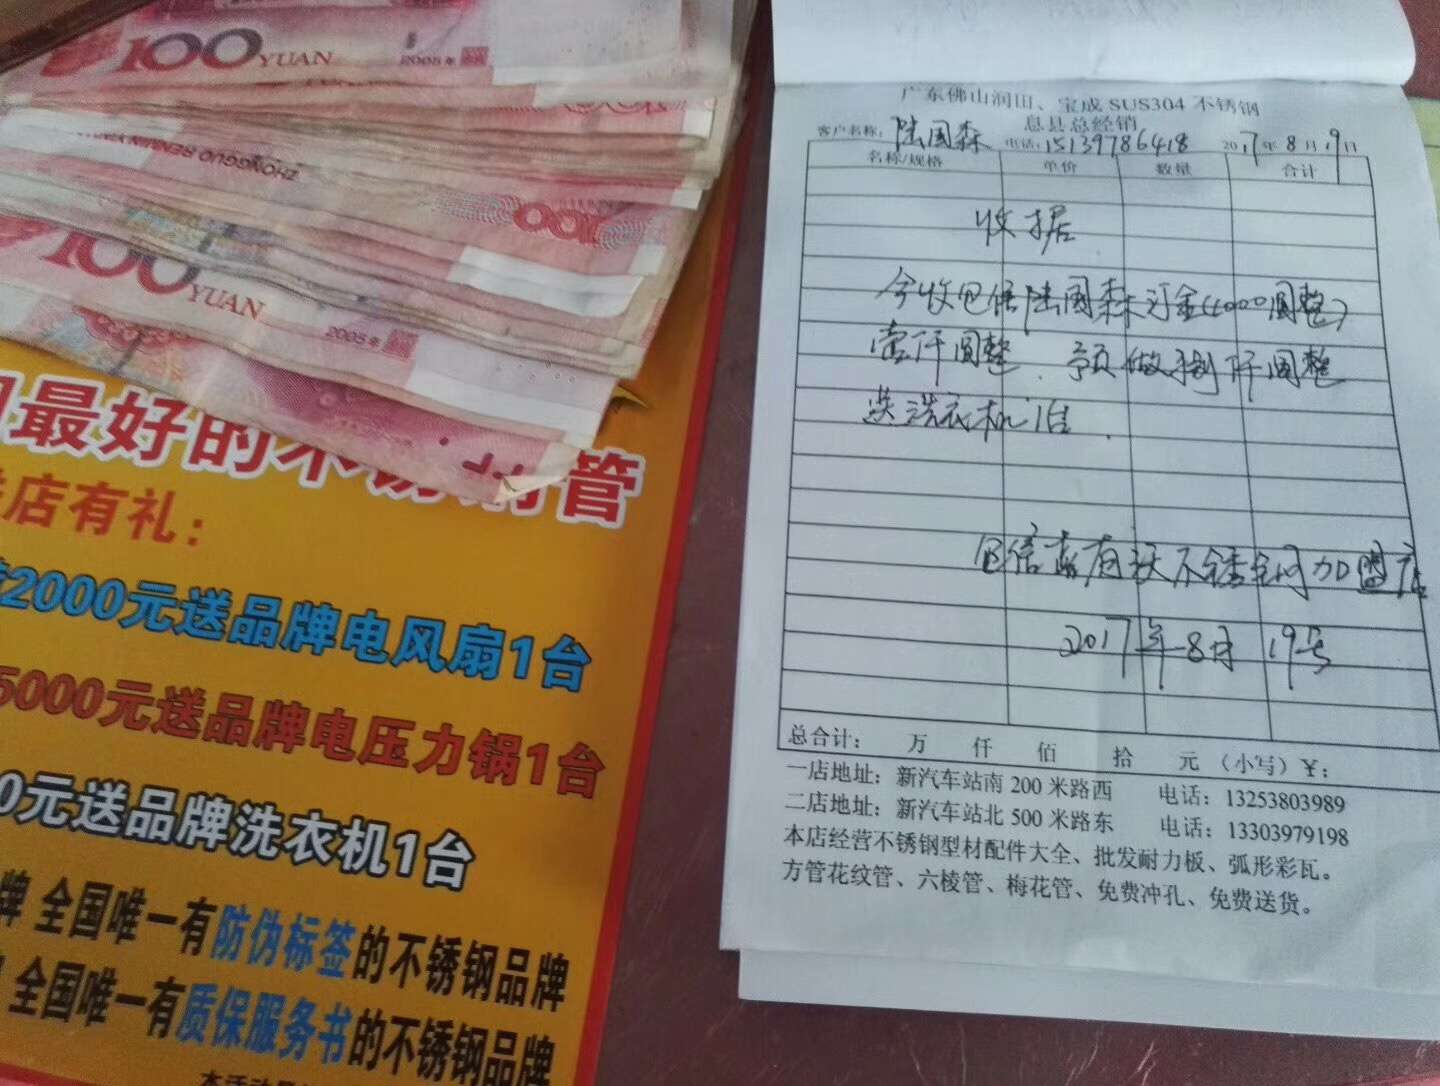 100 YUAN
2005年
ZHONGGUO RENMIN
100
100 YUAN
2005年
最好的不锈钢管
店有礼：
2000元送品牌电风扇1台
5000元送品牌电压力锅1台
0元送品牌洗衣机1台
牌 全国唯一有防伪标签的不锈钢品牌
全国唯一有质保服务书的不锈钢品牌
广东佛山润田、宝成 SUS304 不锈钢
息县总经销
客户名称：陆国森 电话：15139786418 2017年8月19日
名称/规格 单价 数量 合计
收据
今收包信陆国森订金(1000圆整)
壹仟圆整、预做捌仟圆整
送洗衣机1台.
包信 不锈钢加盟店
2017年8月19号
总合计： 万 仟 佰 拾 元 （小写）￥：
一店地址：新汽车站南 200 米路西 电话：13253803989
二店地址：新汽车站北 500 米路东 电话：13303979198
本店经营不锈钢型材配件大全、批发耐力板、弧形彩瓦。
方管花纹管、六棱管、梅花管、免费冲孔、免费送货。